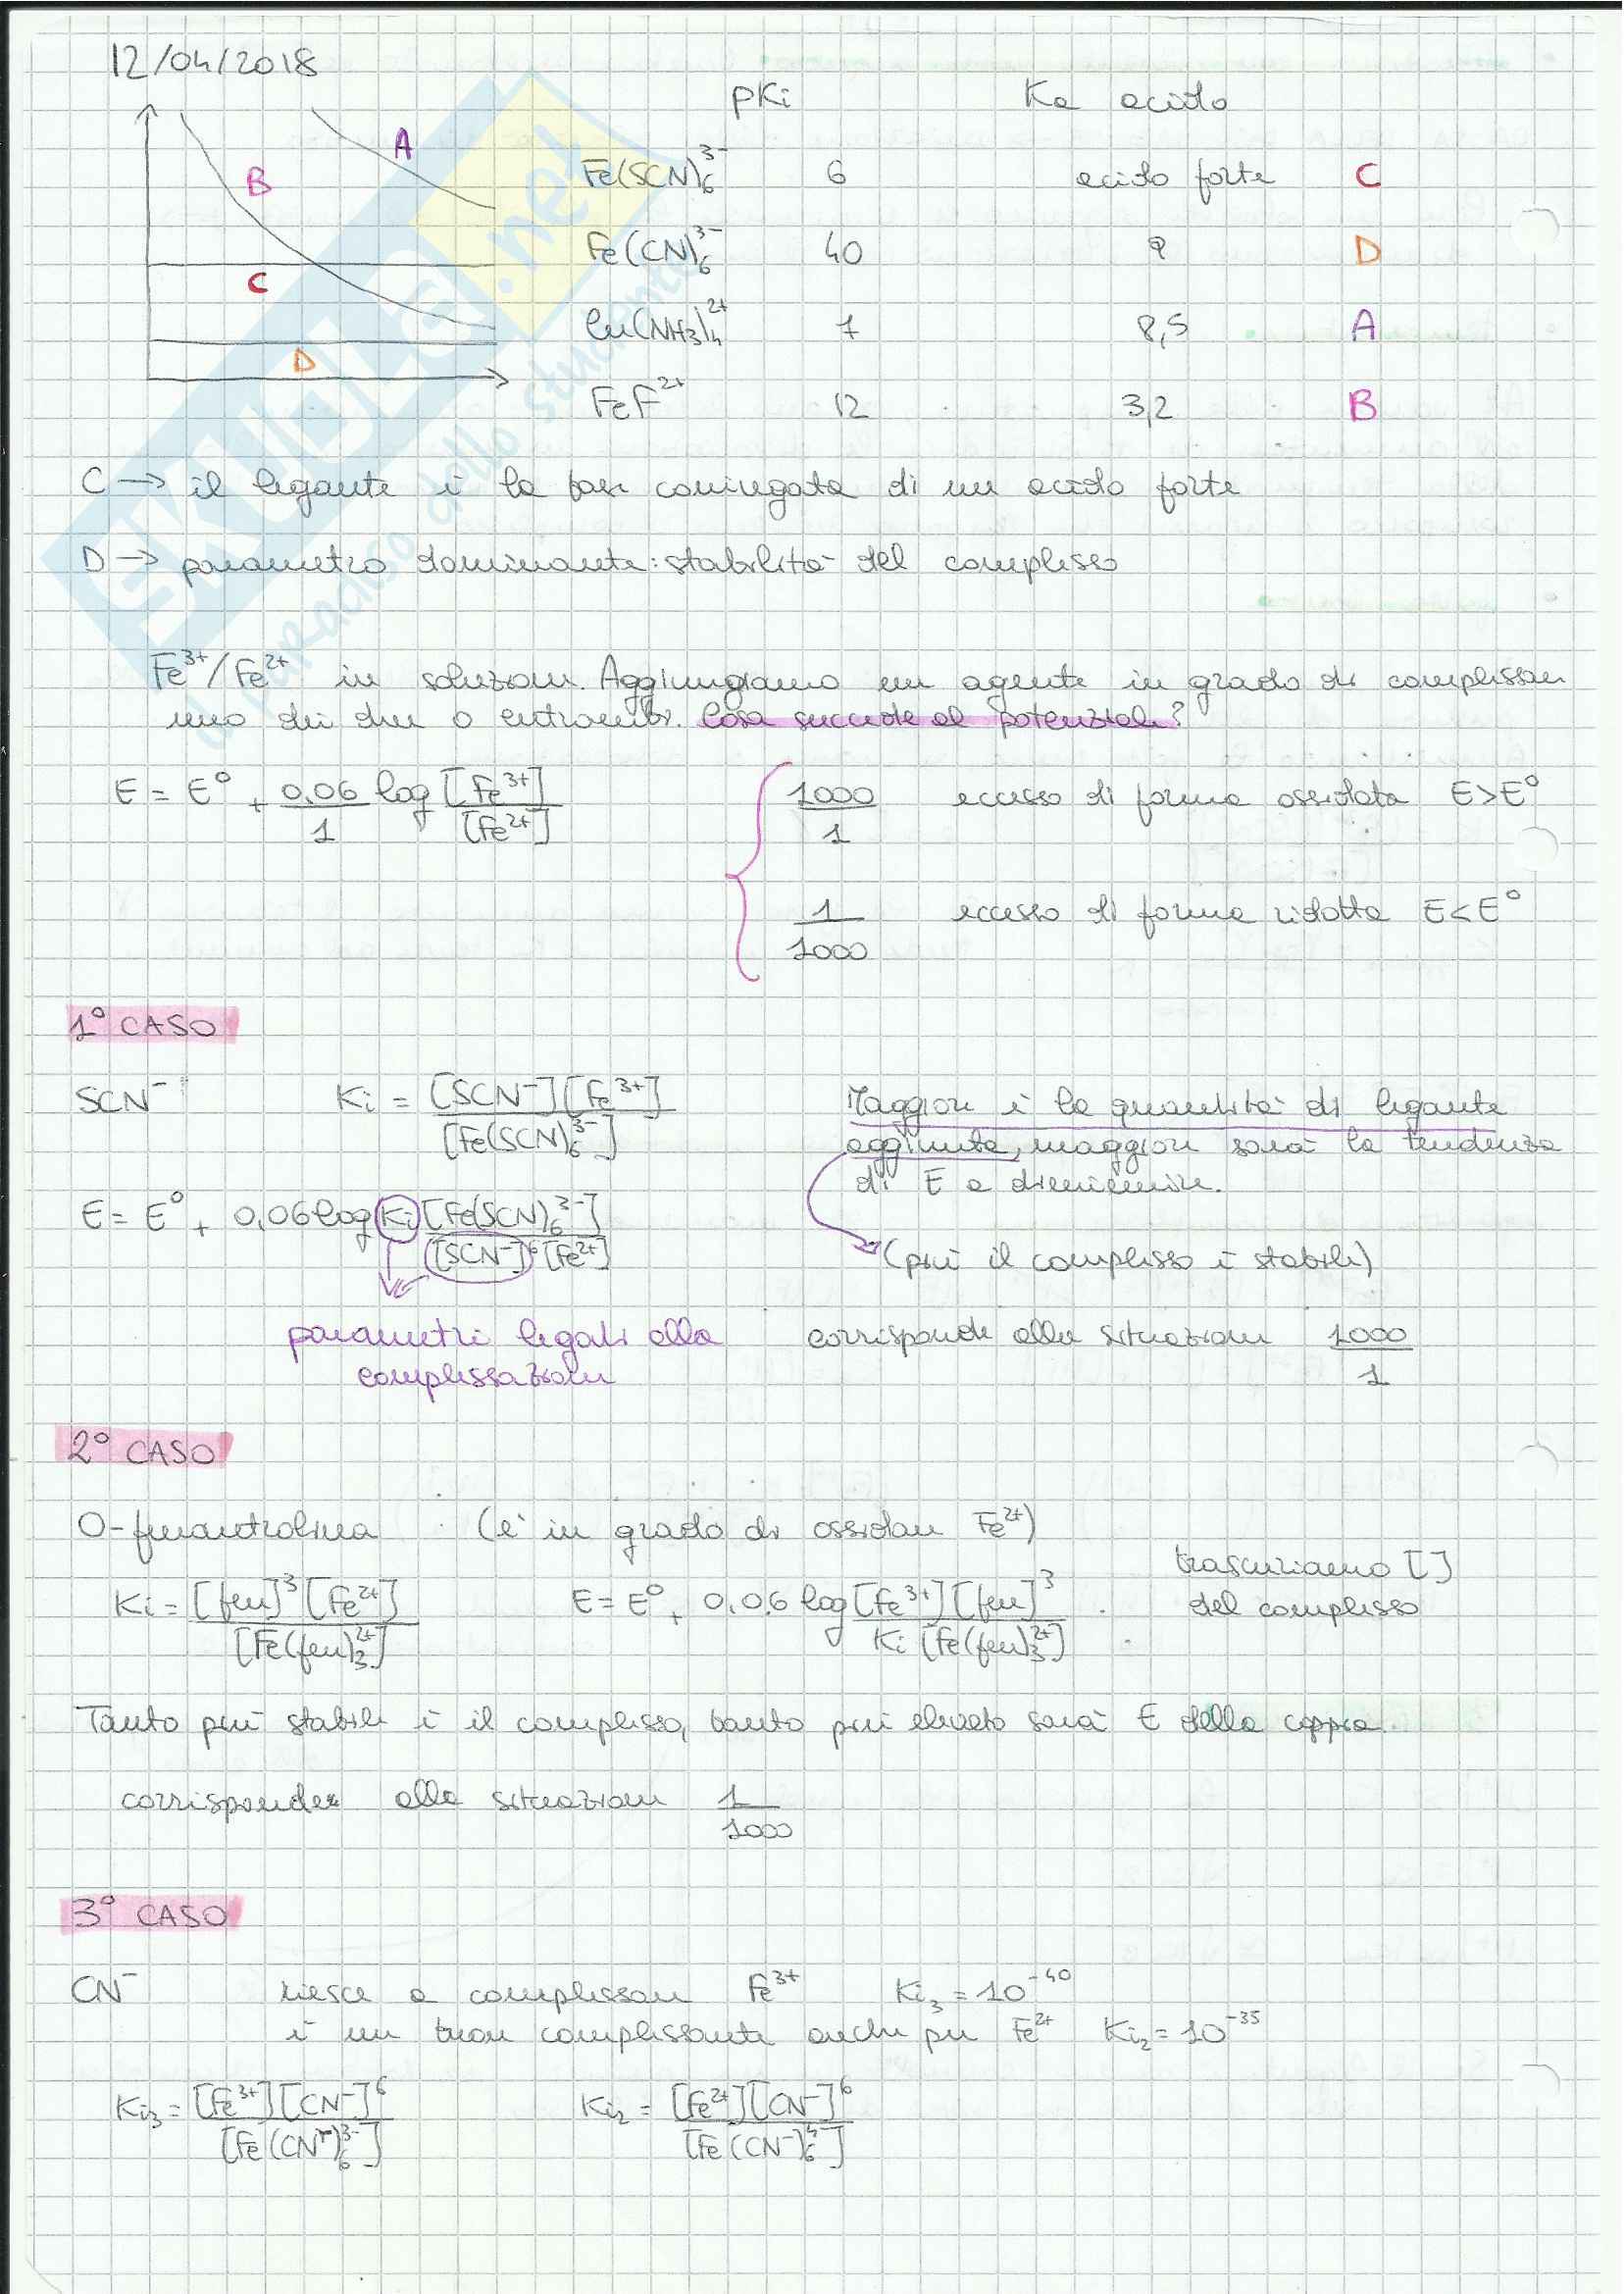 12/04/2018
pKi Ka acido
A
B
C
D
Fe(SCN)₆³⁻ 6 acido forte C
Fe(CN)₆³⁻ 40 9 D
Cu(NH₃)₄²⁺ 7 8,5 A
FeF²⁺ 12 3,2 B
C → il legante è la base coniugata di un acido forte
D → parametro dominante: stabilità del complesso
Fe³⁺/Fe²⁺ in soluzione. Aggiungiamo un agente in grado di complessare
uno dei due o entrambi. Cosa succede al potenziale?
E = E⁰ + 0,06/1 log [Fe³⁺]/[Fe²⁺]
1000/1 eccesso di forma ossidata E>E⁰
1/1000 eccesso di forma ridotta E<E⁰
1° CASO
SCN⁻ Ki = [SCN⁻][Fe³⁺]/[Fe(SCN)₆³⁻]
Maggiore è la quantità di legante
aggiunta, maggiore sarà la tendenza
di E a diminuire.
E = E⁰ + 0,06 log Ki [Fe(SCN)₆³⁻]/[SCN⁻]⁶[Fe²⁺]
(più il complesso è stabile)
parametri legati alla
complessazione
corrisponde alla situazione 1000/1
2° CASO
O-fenantrolina (è in grado di ossidare Fe²⁺)
Ki = [fen]³[Fe²⁺]/[Fe(fen)₃²⁺] E = E⁰ + 0,06 log [Fe³⁺][fen]³/Ki [Fe(fen)₃²⁺]
trascuriamo [ ]
del complesso
Tanto più stabile è il complesso, tanto più elevato sarà E della coppia.
corrisponde alla situazione 1/1000
3° CASO
CN⁻ riesce a complessare Fe³⁺ Ki₃ = 10⁻⁴⁰
è un buon complessante anche per Fe²⁺ Ki₂ = 10⁻³⁵
Ki₃ = [Fe³⁺][CN⁻]⁶/[Fe(CN⁻)₆³⁻] Ki₂ = [Fe²⁺][CN⁻]⁶/[Fe(CN⁻)₆⁴⁻]
SKUOLA.net
il paradiso dello studente